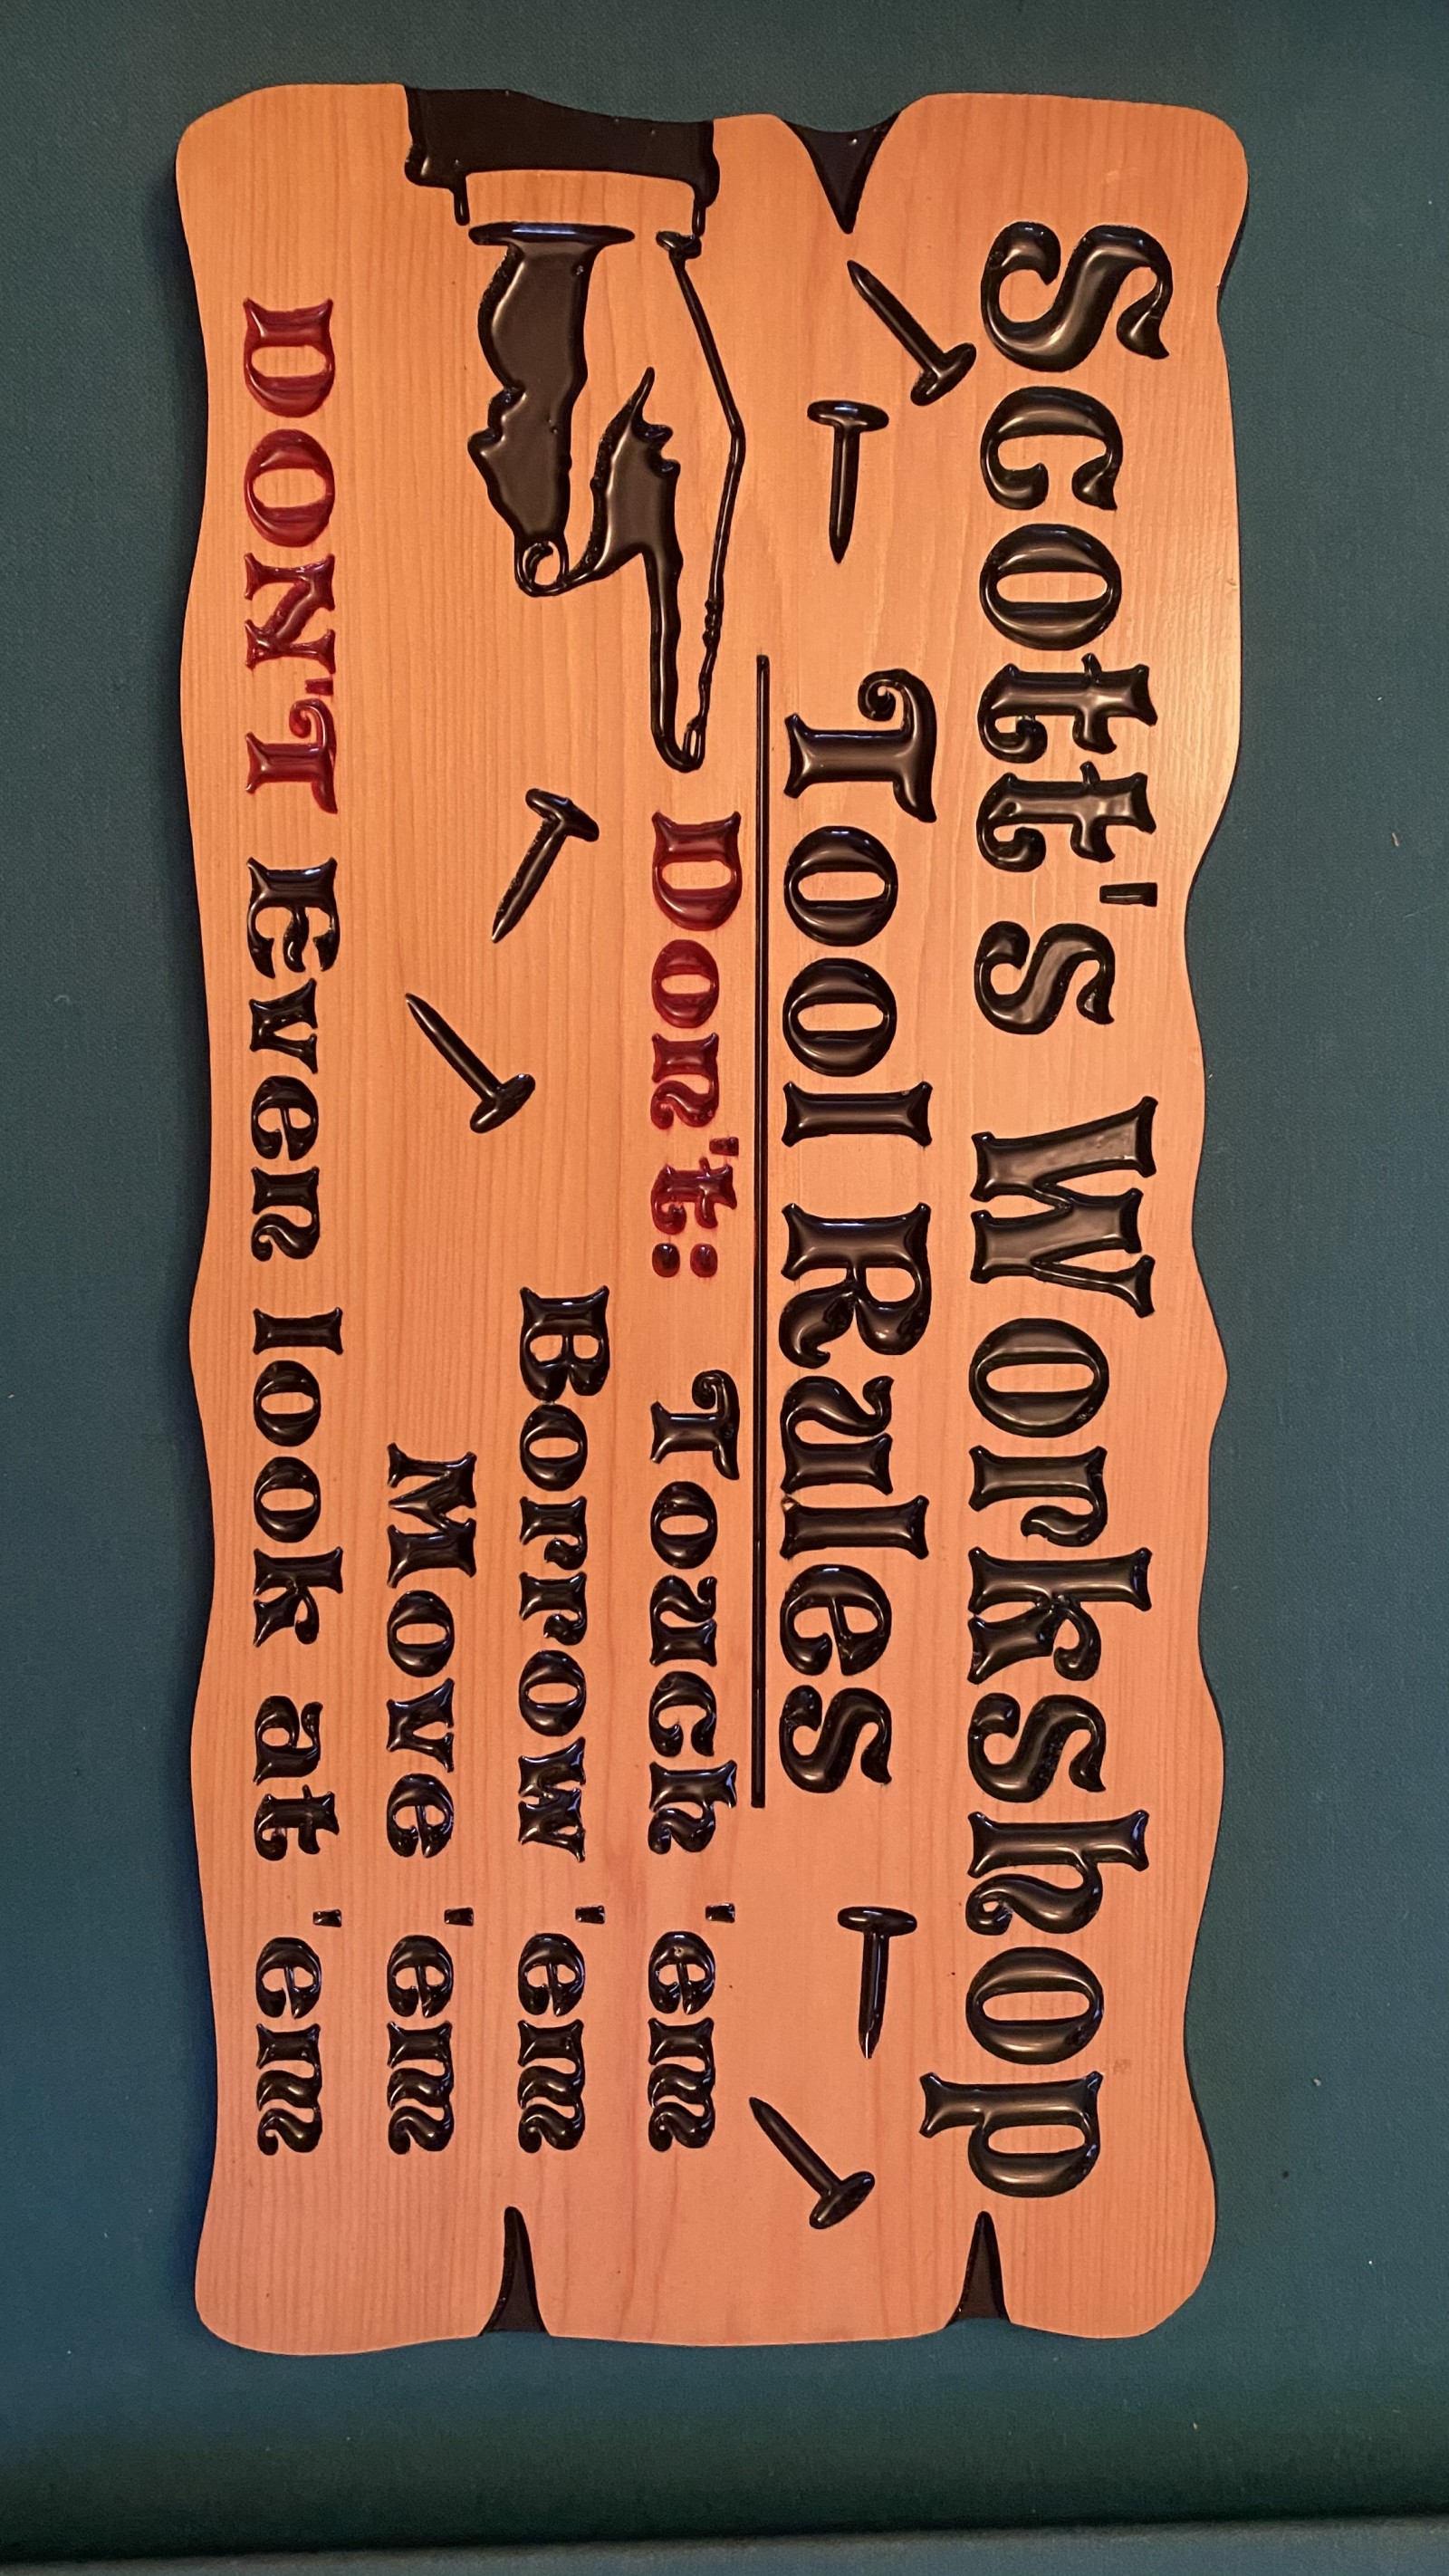 Scott's Workshop
Tool Rules
Don't: Touch 'em
Borrow 'em
Move 'em
DON'T Even look at 'em